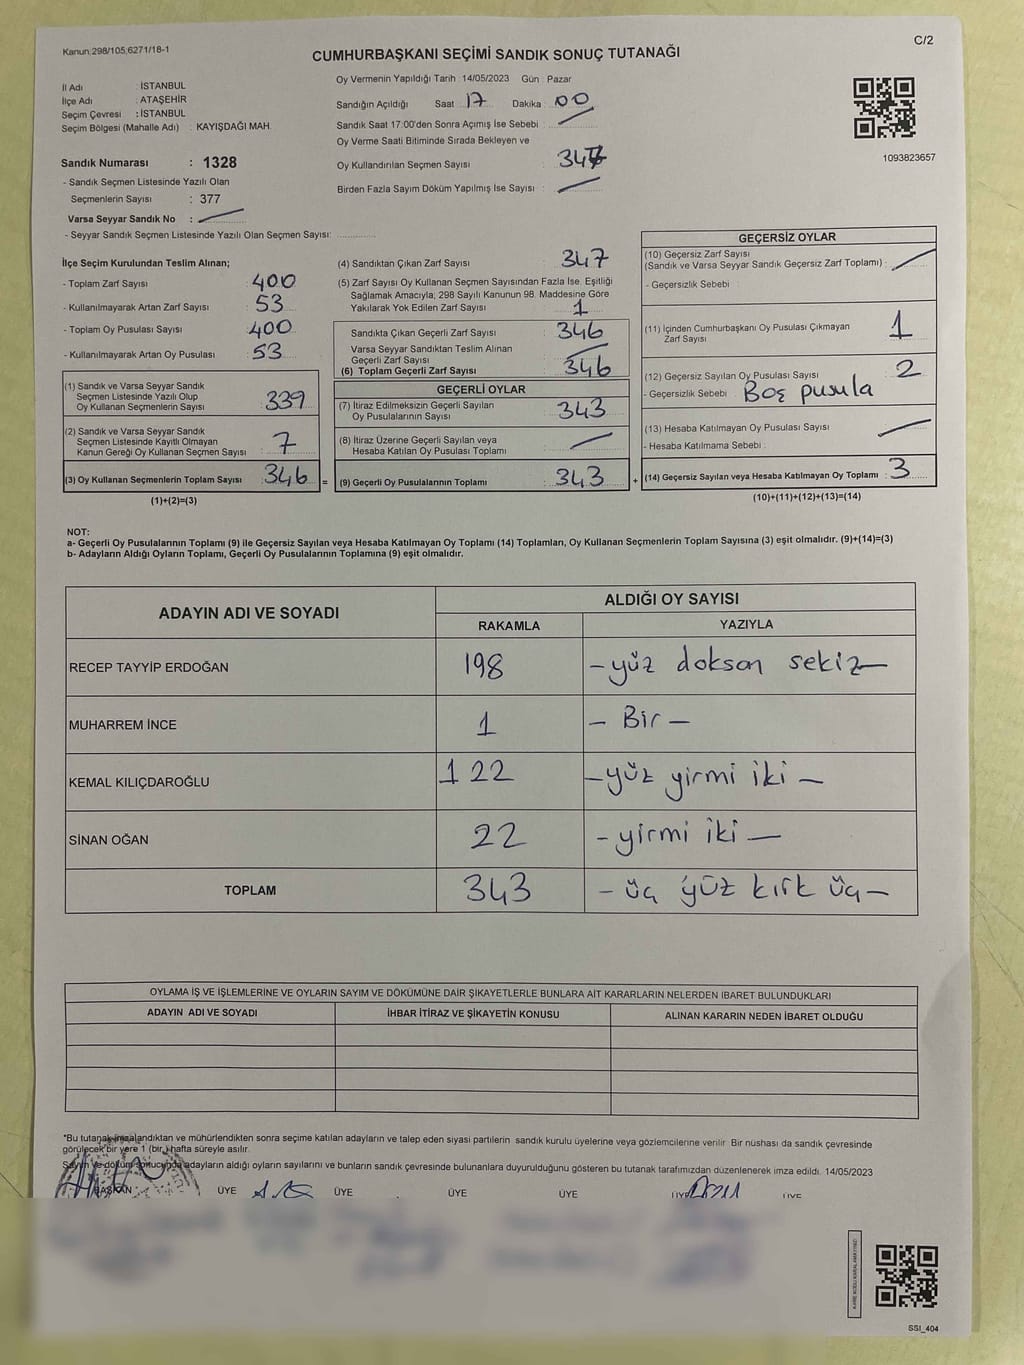 Kanun:298/105,6271/18-1
C/2
CUMHURBAŞKANI SEÇİMİ SANDIK SONUÇ TUTANAĞI
İl Adı : İSTANBUL
İlçe Adı : ATAŞEHİR
Seçim Çevresi : İSTANBUL
Seçim Bölgesi (Mahalle Adı) : KAYIŞDAĞI MAH.
Sandık Numarası : 1328
- Sandık Seçmen Listesinde Yazılı Olan
Seçmenlerin Sayısı : 377
Varsa Seyyar Sandık No :
- Seyyar Sandık Seçmen Listesinde Yazılı Olan Seçmen Sayısı:
Oy Vermenin Yapıldığı Tarih : 14/05/2023 Gün : Pazar
Sandığın Açıldığı Saat : 17 Dakika : 00
Sandık Saat 17:00'den Sonra Açımış İse Sebebi :
Oy Verme Saati Bitiminde Sırada Bekleyen ve
Oy Kullandırılan Seçmen Sayısı :
Birden Fazla Sayım Döküm Yapılmış İse Sayısı :
1093823657
İlçe Seçim Kurulundan Teslim Alınan;
- Toplam Zarf Sayısı : 400
- Kullanılmayarak Artan Zarf Sayısı : 53
- Toplam Oy Pusulası Sayısı : 400
- Kullanılmayarak Artan Oy Pusulası : 53
(1) Sandık ve Varsa Seyyar Sandık
Seçmen Listesinde Yazılı Olup
Oy Kullanan Seçmenlerin Sayısı : 339
(2) Sandık ve Varsa Seyyar Sandık
Seçmen Listesinde Kayıtlı Olmayan
Kanun Gereği Oy Kullanan Seçmen Sayısı : 7
(3) Oy Kullanan Seçmenlerin Toplam Sayısı : 346 =
(1)+(2)=(3)
(4) Sandıktan Çıkan Zarf Sayısı : 347
(5) Zarf Sayısı Oy Kullanan Seçmen Sayısından Fazla İse, Eşitliği
Sağlamak Amacıyla, 298 Sayılı Kanunun 98. Maddesine Göre
Yakılarak Yok Edilen Zarf Sayısı : 1
Sandıkta Çıkan Geçerli Zarf Sayısı : 346
Varsa Seyyar Sandıktan Teslim Alınan
Geçerli Zarf Sayısı :
(6) Toplam Geçerli Zarf Sayısı : 346
GEÇERLİ OYLAR
(7) İtiraz Edilmeksizin Geçerli Sayılan
Oy Pusulalarının Sayısı : 343
(8) İtiraz Üzerine Geçerli Sayılan veya
Hesaba Katılan Oy Pusulası Toplamı :
(9) Geçerli Oy Pusulalarının Toplamı : 343 +
GEÇERSİZ OYLAR
(10) Geçersiz Zarf Sayısı
(Sandık ve Varsa Seyyar Sandık Geçersiz Zarf Toplamı) :
- Geçersizlik Sebebi :
(11) İçinden Cumhurbaşkanı Oy Pusulası Çıkmayan
Zarf Sayısı : 1
(12) Geçersiz Sayılan Oy Pusulası Sayısı : 2
- Geçersizlik Sebebi : Boş pusula
(13) Hesaba Katılmayan Oy Pusulası Sayısı :
- Hesaba Katılmama Sebebi :
(14) Geçersiz Sayılan veya Hesaba Katılmayan Oy Toplamı : 3
(10)+(11)+(12)+(13)=(14)
NOT:
a- Geçerli Oy Pusulasının Toplamı (9) ile Geçersiz Sayılan veya Hesaba Katılmayan Oy Toplamı (14) Toplamları, Oy Kullanan Seçmenlerin Toplam Sayısına (3) eşit olmalıdır. (9)+(14)=(3)
b- Adayların Aldığı Oyların Toplamı, Geçerli Oy Pusulalarının Toplamına (9) eşit olmalıdır.
ADAYIN ADI VE SOYADI
ALDIĞI OY SAYISI
RAKAMLA YAZIYLA
RECEP TAYYİP ERDOĞAN 198 - yüz doksan sekiz -
MUHARREM İNCE 1 - Bir -
KEMAL KILIÇDAROĞLU 122 - yüz yirmi iki -
SİNAN OĞAN 22 - yirmi iki -
TOPLAM 343 - üç yüz kırk üç -
OYLAMA İŞ VE İŞLEMLERİNE VE OYLARIN SAYIM VE DÖKÜMÜNE DAİR ŞİKAYETLERLE BUNLARA AİT KARARLARIN NELERDEN İBARET BULUNDUKLARI
ADAYIN ADI VE SOYADI İHBAR İTİRAZ VE ŞİKAYETİN KONUSU ALINAN KARARIN NEDEN İBARET OLDUĞU
*Bu tutanak imzalandıktan ve mühürlendikten sonra seçime katılan adayların ve talep eden siyasi partilerin sandık kurulu üyelerine veya gözlemcilerine verilir. Bir nüshası da sandık çevresinde
görülecek bir yere 1 (bir) hafta süreyle asılır.
Sayım ve döküm sonucunda adayların aldığı oyların sayılarını ve bunların sandık çevresinde bulunanlara duyurulduğunu gösteren bu tutanak tarafımızdan düzenlenerek imza edildi. 14/05/2023
BAŞKAN ÜYE ÜYE ÜYE ÜYE ÜYE ÜYE
SSİ_404